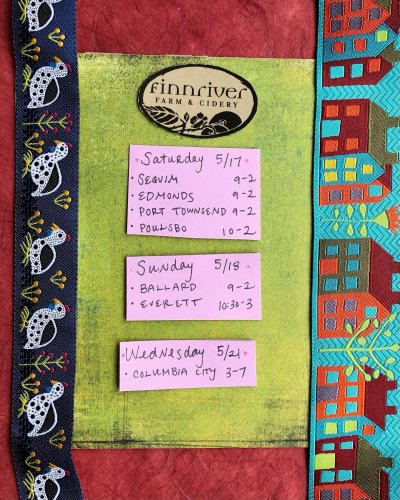 finnriver
FARM & CIDERY
Saturday 5/17
• SEQUIM 9-2
• EDMONDS 9-2
• PORT TOWNSEND 9-2
• POULSBO 10-2
Sunday 5/18
• BALLARD 9-2
• EVERETT 10:30-3
Wednesday 5/21
• COLUMBIA CITY 3-7